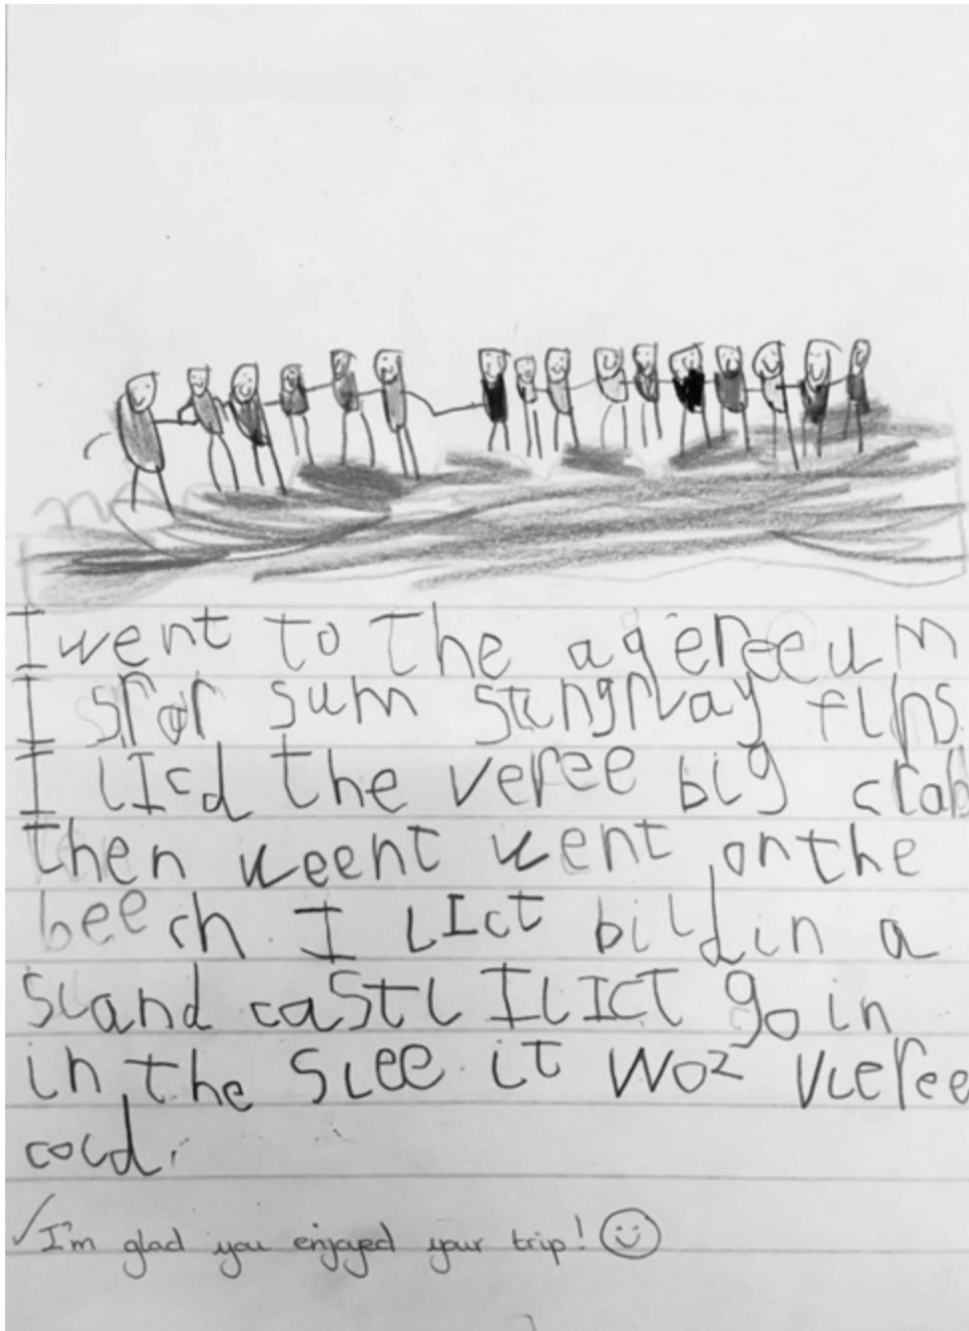 I went to the aqereeum
I sror sum stingray fins
I licd the veree big crab
then weent went on the
beech. I lict bildin a
sand castl I lict go in
in the slee. it woz vieree
cold.
I'm glad you enjoyed your trip!